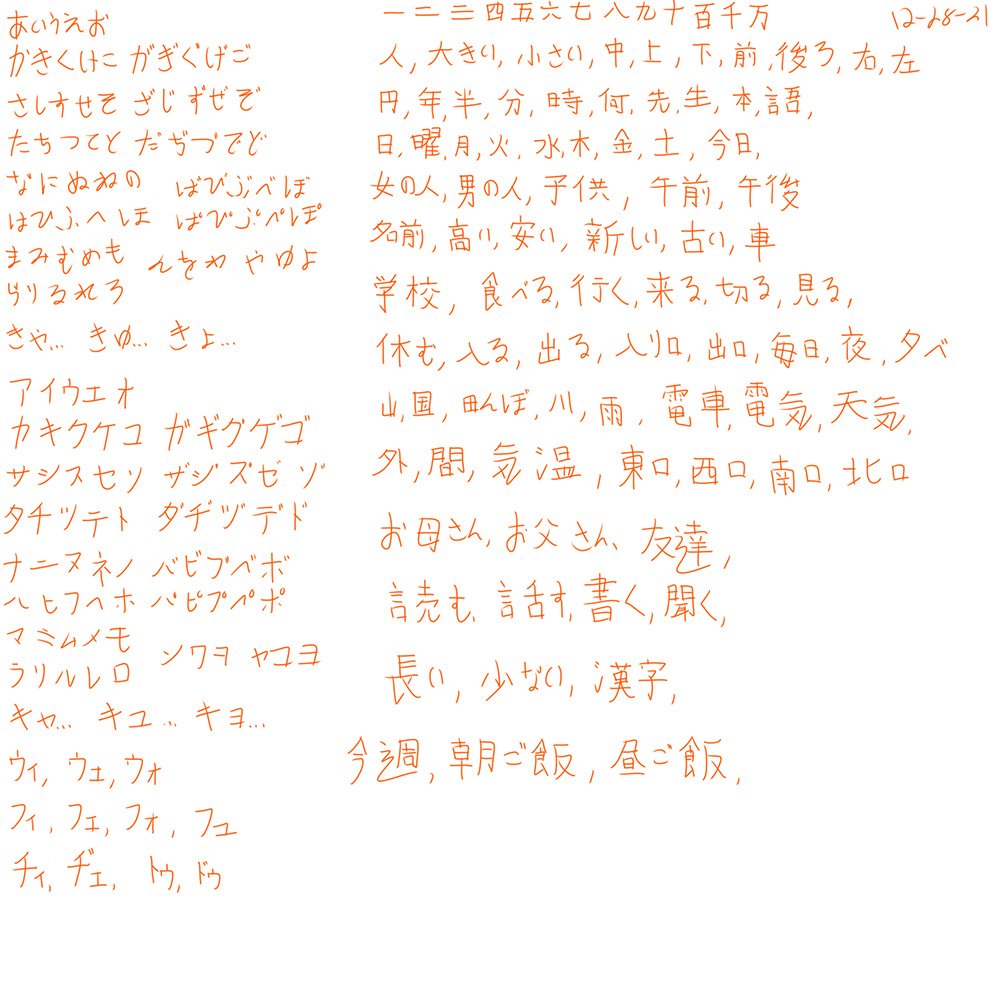 あいうえお
かきくけこ がぎぐげご
さしすせそ ざじずぜぞ
たちつてと だぢづでど
なにぬねの ばびぶべぼ
はひふへほ ぱぴぷぺぽ
まみむめも んをわ やゆよ
らりるれろ
きゃ... きゅ... きょ...
アイウエオ
カキクケコ ガギグゲゴ
サシスセソ ザジズゼゾ
タチツテト ダヂヅデド
ナニヌネノ バビブベボ
ハヒフヘホ パピプペポ
マミムメモ ンワヲ ヤユヨ
ラリルレロ
キャ... キュ... キョ...
ウィ, ウェ, ウォ
フィ, フェ, フォ, フュ
チィ, ヂェ, トゥ, ドゥ
一二三四五六七八九十百千万 12-28-21
人, 大きり, 小さい, 中, 上, 下, 前, 後ろ, 右, 左
円, 年, 半, 分, 時, 何, 先, 生, 本, 語,
日, 曜, 月, 火, 水, 木, 金, 土, 今日,
女の人, 男の人, 子供, 午前, 午後
名前, 高い, 安い, 新しい, 古い, 車
学校, 食べる, 行く, 来る, 切る, 見る,
休む, 入る, 出る, 入り口, 出口, 毎日, 夜, 夕べ
山, 国, 田んぼ, 川, 雨, 電車, 電気, 天気,
外, 間, 気温, 東口, 西口, 南口, 北口
お母さん, お父さん, 友達,
読む, 話す, 書く, 聞く,
長い, 少ない, 漢字,
今週, 朝ご飯, 昼ご飯,